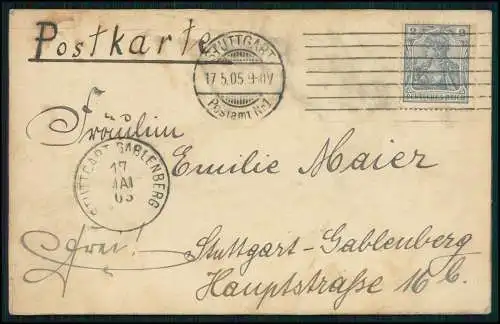 Postkarte
STUTTGART
17.5.05.9-10V
Postamt No 1
2 2
DEUTSCHES REICH
Fräulin
Emilie Maier
STUTTGART GABLENBERG
17
MAI
05
(frei!)
Stuttgart-Gablenberg
Hauptstraße 16 C.